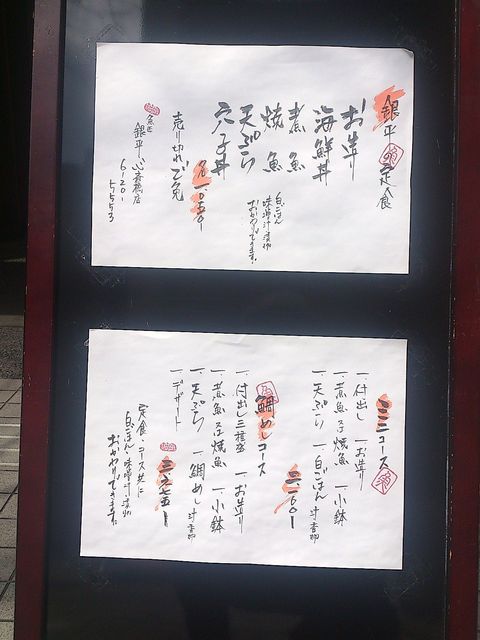 銀平の定食
お造り
海鮮丼
煮魚
焼魚
天ぷら
穴子丼
白ごはん
味噌汁漬物
おかわりできます。
各一〇五〇
売り切れご免
魚匠
銀平 心斎橋店
6201
5553
ミニコース
一、付出し 一、お造り
一、煮魚又は焼魚 一、小鉢
一、天ぷら 一、白ごはん 汁香物
二一〇〇
鯛めしコース
一、付出し三種盛 一、お造り
一、煮魚又は焼魚 一、小鉢
一、天ぷら 一、鯛めし 汁香物
一、デザート
定食・コース共に
白ごはん・味噌汁・漬物
おかわりできます。